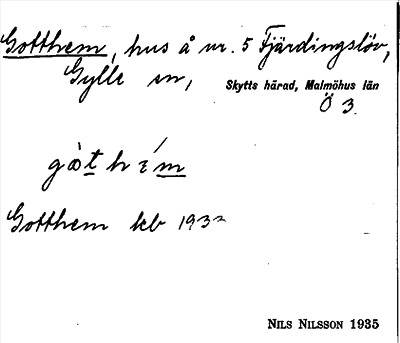 Gotthem, hus å nr. 5 Fjärdingslöv,
Gylle sn,
Skytts härad, Malmöhus län
Ö 3.
gòt h ɛ́ m
Gotthem kb 1932
NILS NILSSON 1935